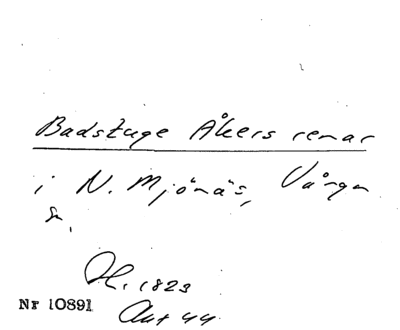 Badstuge Åkers renar
i N. Mjönäs, Vånga
sn.
H. 1823
Nr 10891
Akt 44